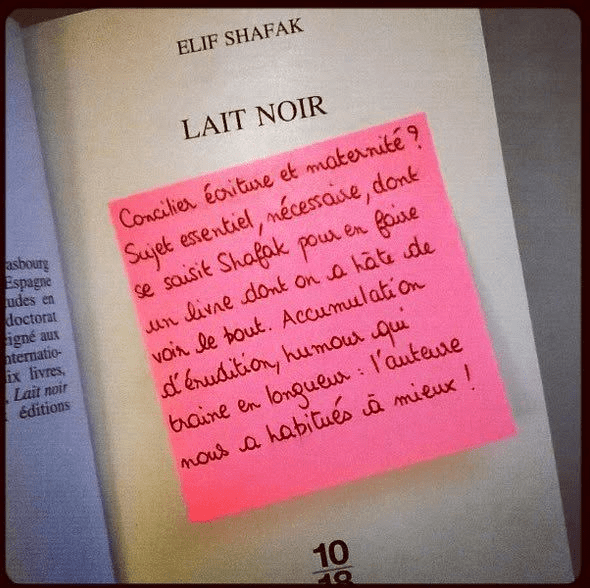 ELIF SHAFAK
LAIT NOIR
Concilier écriture et maternité ?
Sujet essentiel, nécessaire, dont
se saisit Shafak pour en faire
un livre dont on a hâte de
voir le bout. Accumulation
d'érudition, humour qui
traine en longueur : l'auteuse
nous a habitués à mieux !
asbourg
Espagne
udes en
doctorat
igné aux
nternatio-
ix livres,
Lait noir
éditions
10
18